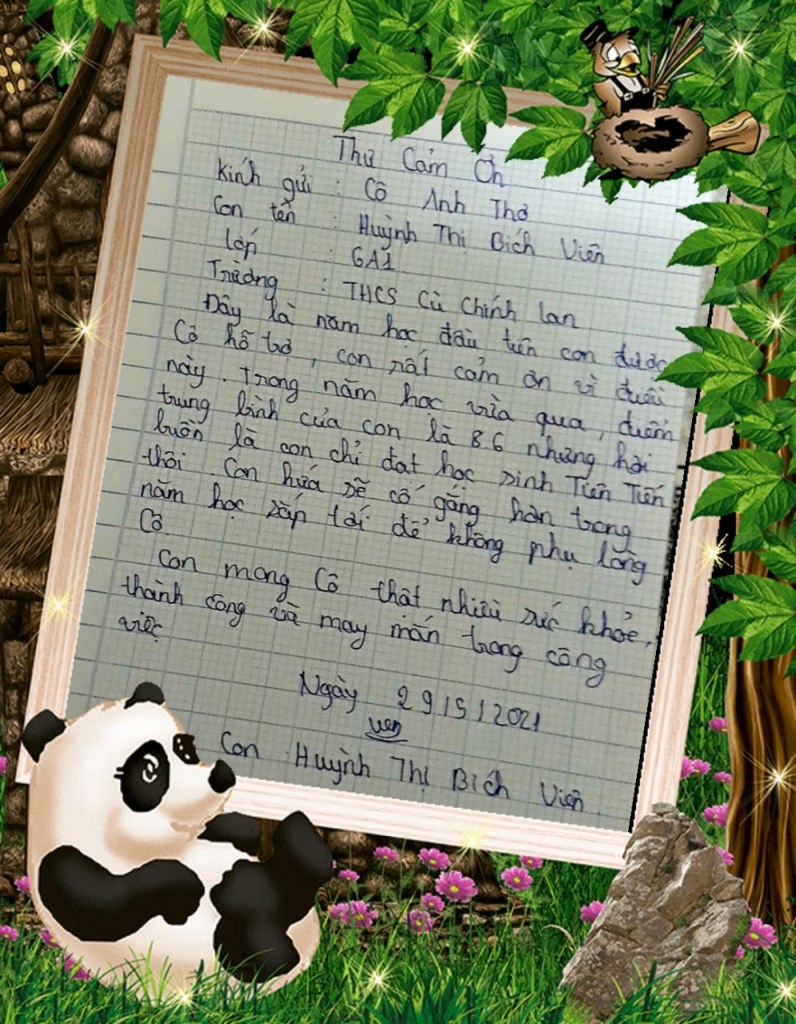 Thư Cảm Ơn
Kính gửi : Cô Anh Thơ
Con tên : Huỳnh Thị Bích Viên
Lớp : 6A1
Trường : THCS Cù Chính Lan
Đây là năm học đầu tiên con được
Cô hỗ trợ, con rất cảm ơn vì điều
này. Trong năm học vừa qua, điểm
trung bình của con là 8.6 nhưng hơi
buồn là con chỉ đạt học sinh Tiên Tiến
thôi. Con hứa sẽ cố gắng hơn trong
năm học sắp tới để không phụ lòng
Cô.
Con mong Cô thật nhiều sức khỏe,
thành công và may mắn trong công
việc
Ngày 29/5/2021
Viên
Con : Huỳnh Thị Bích Viên